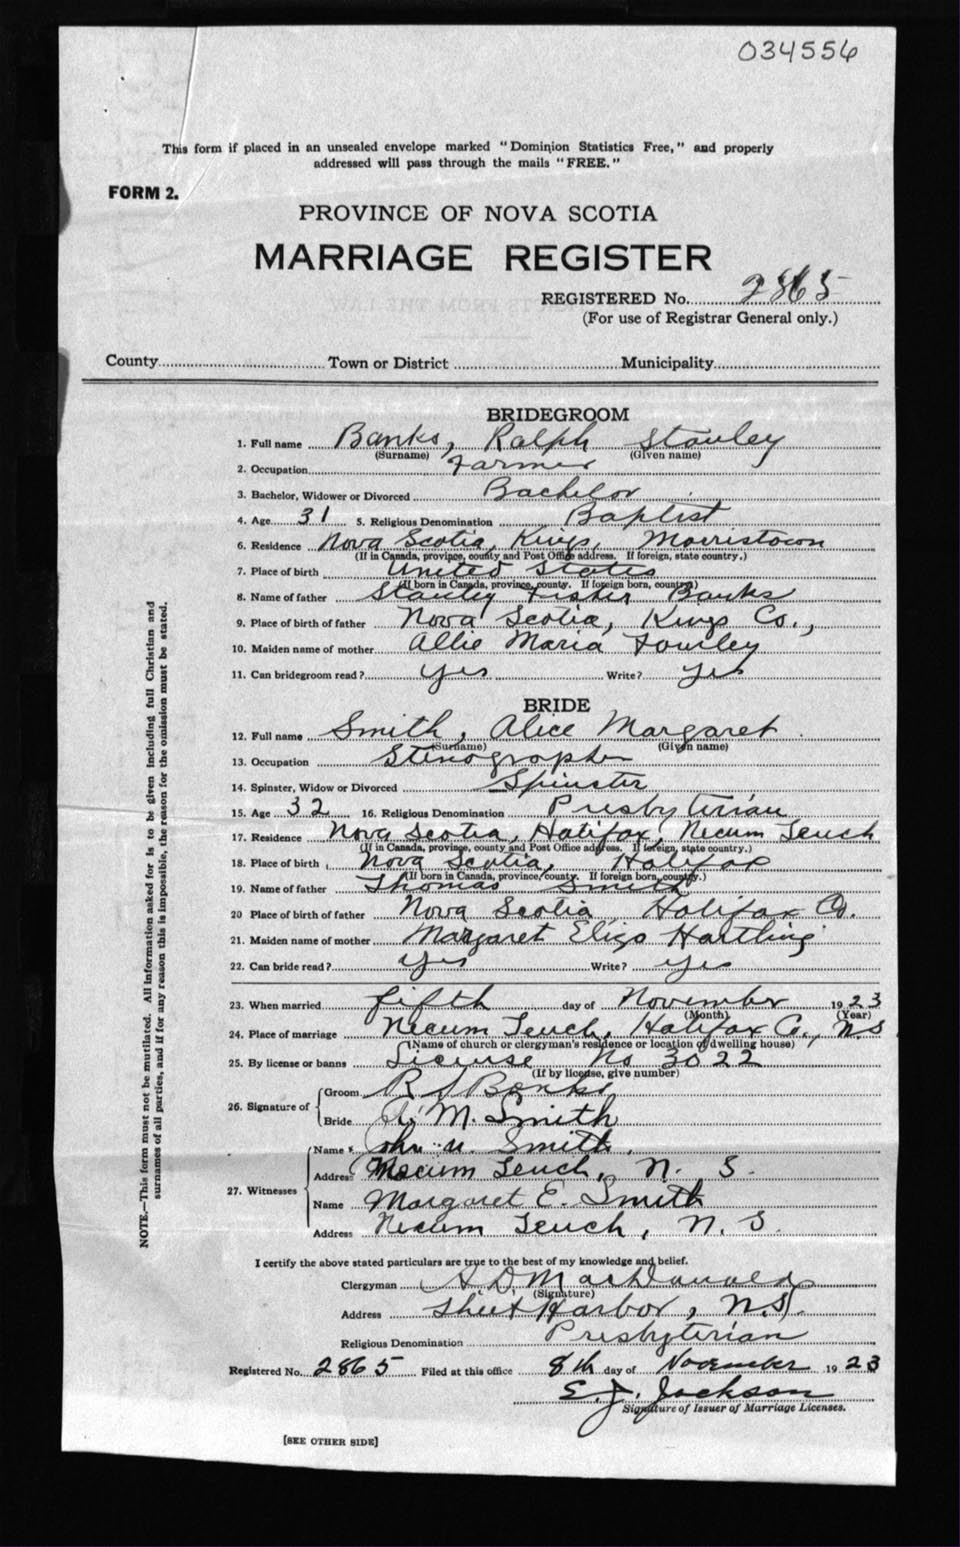 034556
This form if placed in an unsealed envelope marked "Dominion Statistics Free," and properly
addressed will pass through the mails "FREE."
FORM 2.
PROVINCE OF NOVA SCOTIA
MARRIAGE REGISTER
REGISTERED No. 2865
(For use of Registrar General only.)
County Town or District Municipality
BRIDEGROOM
1. Full name Banks, Ralph Stanley
(Surname) (Given name)
2. Occupation Farmer
3. Bachelor, Widower or Divorced Bachelor
4. Age 31 5. Religious Denomination Baptist
6. Residence Nova Scotia, Kings, Morristown
(If in Canada, province, county and Post Office address. If foreign, state country.)
7. Place of birth United States
(If born in Canada, province, county. If foreign born, country)
8. Name of father Stanley Fister Banks
9. Place of birth of father Nova Scotia, Kings Co.,
10. Maiden name of mother Allie Maria
11. Can bridegroom read? yes Write? yes
BRIDE
12. Full name Smith, Alice Margaret
(Surname) (Given name)
13. Occupation Stenographer
14. Spinster, Widow or Divorced Spinster
15. Age 32 16. Religious Denomination Presbyterian
17. Residence Nova Scotia, Halifax, Necum Teuch
(If in Canada, province, county and Post Office address. If foreign, state country.)
18. Place of birth Nova Scotia, Halifax
(If born in Canada, province, county. If foreign born, country.)
19. Name of father Thomas Smith
20 Place of birth of father Nova Scotia Halifax Co.
21. Maiden name of mother Margaret Eliza Hartling
22. Can bride read? yes Write? yes
23. When married fifth day of November 1923
(Month) (Year)
24. Place of marriage Necum Teuch, Halifax Co., N.S
(Name of church or clergyman's residence or location of dwelling house)
25. By license or banns License No 3022
(If by license, give number)
26. Signature of Groom R S Banks
Bride A. M. Smith
27. Witnesses Name John Smith
Address Necum Teuch, N. S.
Name Margaret E. Smith
Address Necum Teuch, N. S.
I certify the above stated particulars are true to the best of my knowledge and belief.
Clergyman A D MacDonald
(Signature)
Address Sheet Harbor, N.S.
Religious Denomination Presbyterian
Registered No. 2865 Filed at this office 8th day of November 1923
E. J. Jackson
Signature of Issuer of Marriage Licenses.
[SEE OTHER SIDE]
NOTE.—This form must not be mutilated. All information asked for is to be given including full Christian and
surnames of all parties, and if for any reason this is impossible, the reason for the omission must be stated.